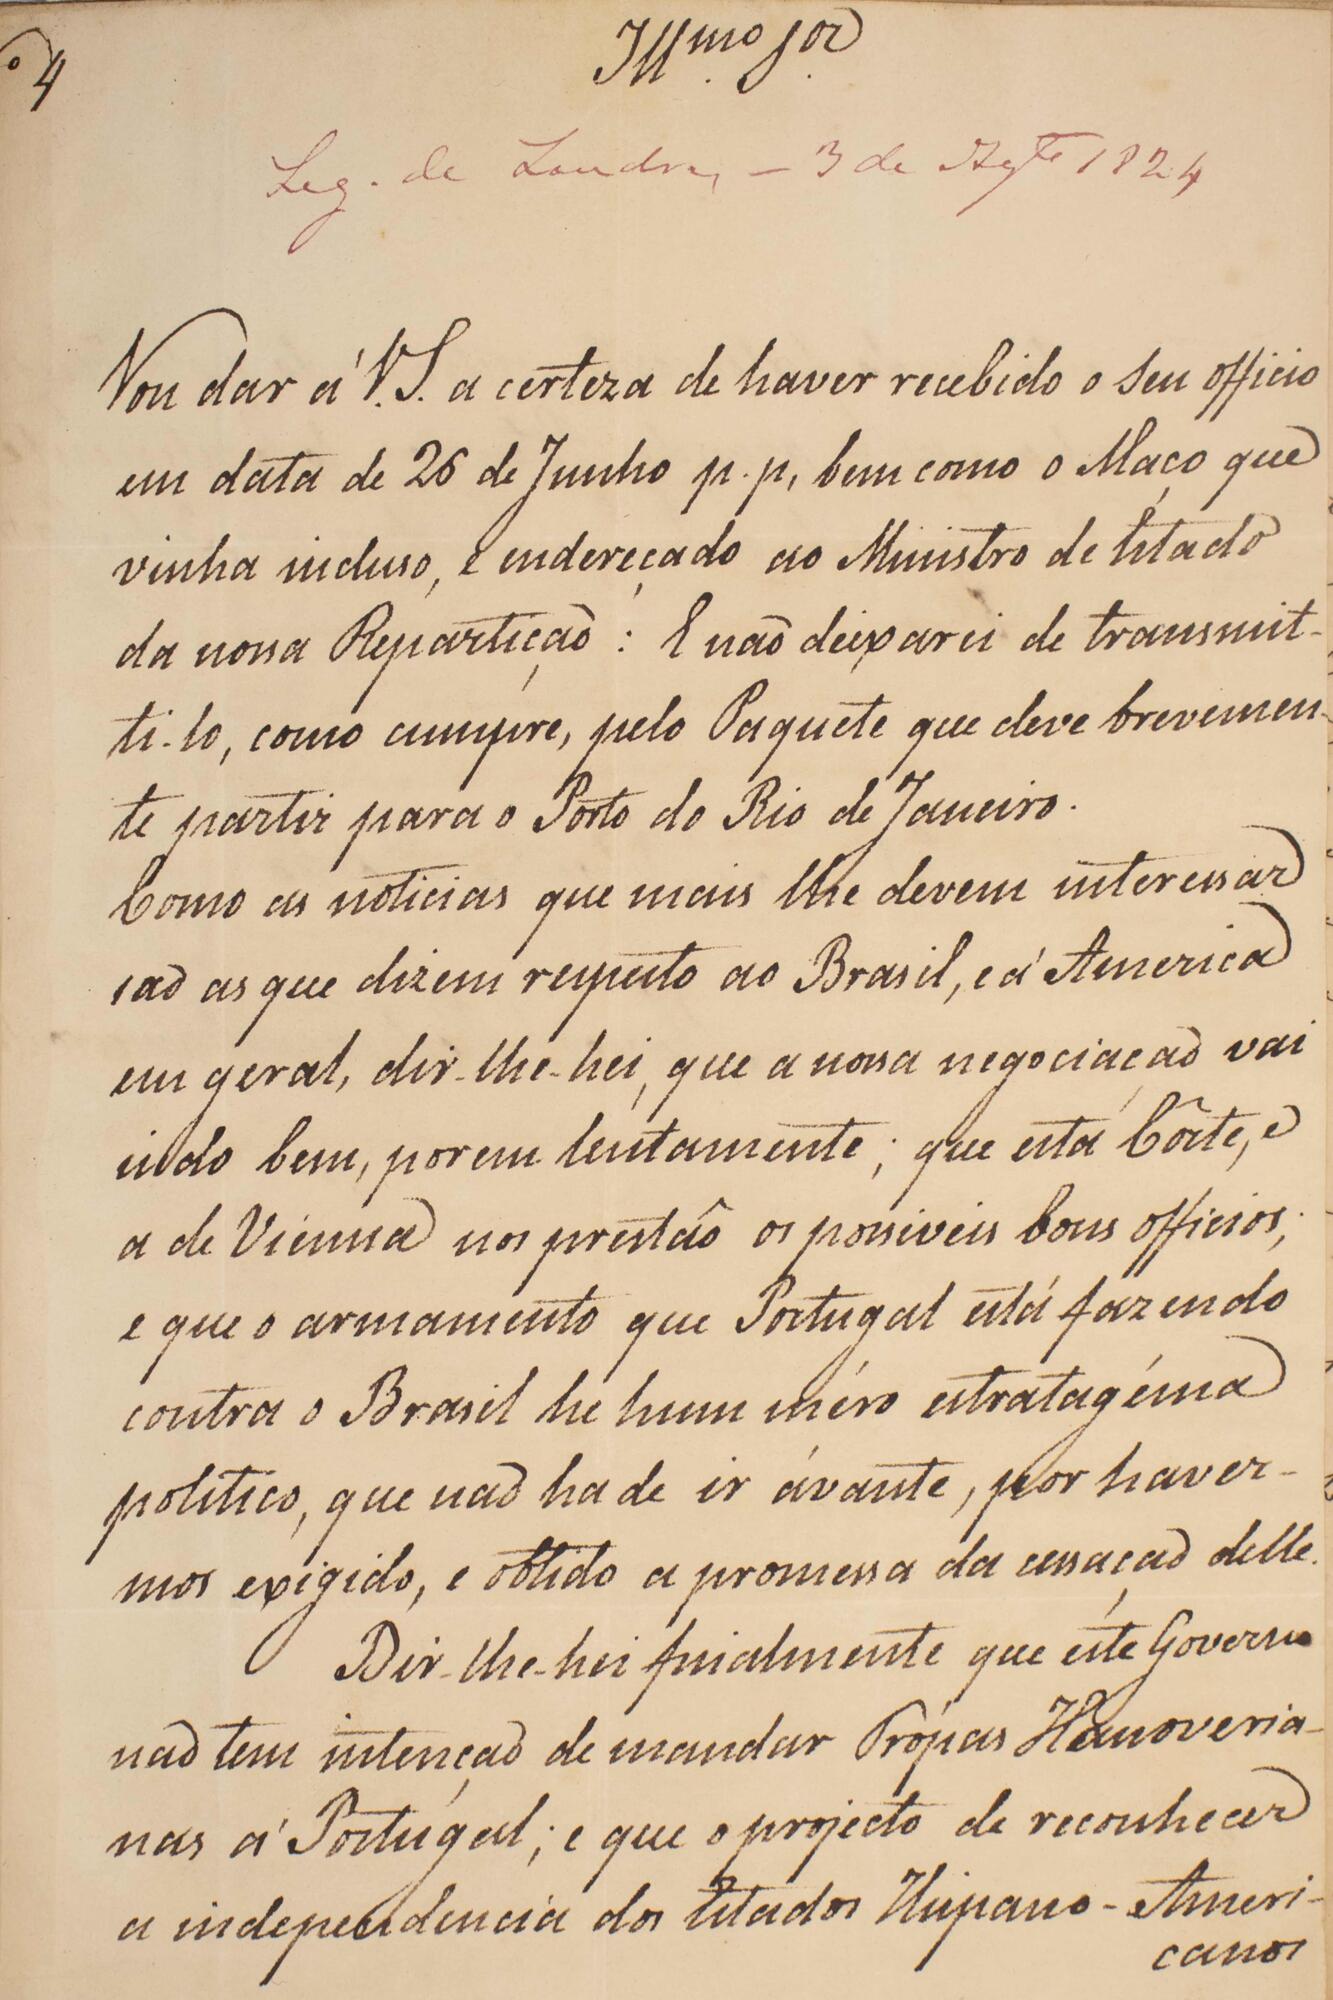 º 4
Illmo Sor
Leg. de Londres — 3 de Agte 1824
Vou dar á V.S. a certeza de haver recebido o seu officio
em data de 26 de Junho p.p., bem como o Maço que
vinha incluso, e endereçado ao Ministro de Estado
da nossa Repartição: E não deixarei de transmit-
ti-lo, como cumpre, pelo Paquete que deve brevemen-
te partir para o Porto do Rio de Janeiro.
Como as noticias que mais lhe devem interessar
são as que dizem respeito ao Brasil, e á America
em geral, dir-lhe-hei, que a nossa negociação vai
indo bem, porem lentamente; que esta Côrte, e
a de Vienna nos prestão os possiveis bons officios;
e que o armamento que Portugal está fazendo
contra o Brasil he hum méro estratagéma
politico, que não ha de ir ávante, por haver-
mos exigido, e obtido a promessa da cessação delle.
Dir-lhe-hei finalmente que este Governo
não tem intenção de mandar Trópas Hanoveria-
nas á Portugal; e que o projecto de reconhecer
a independencia dos Estados Hispano-Ameri-
canos